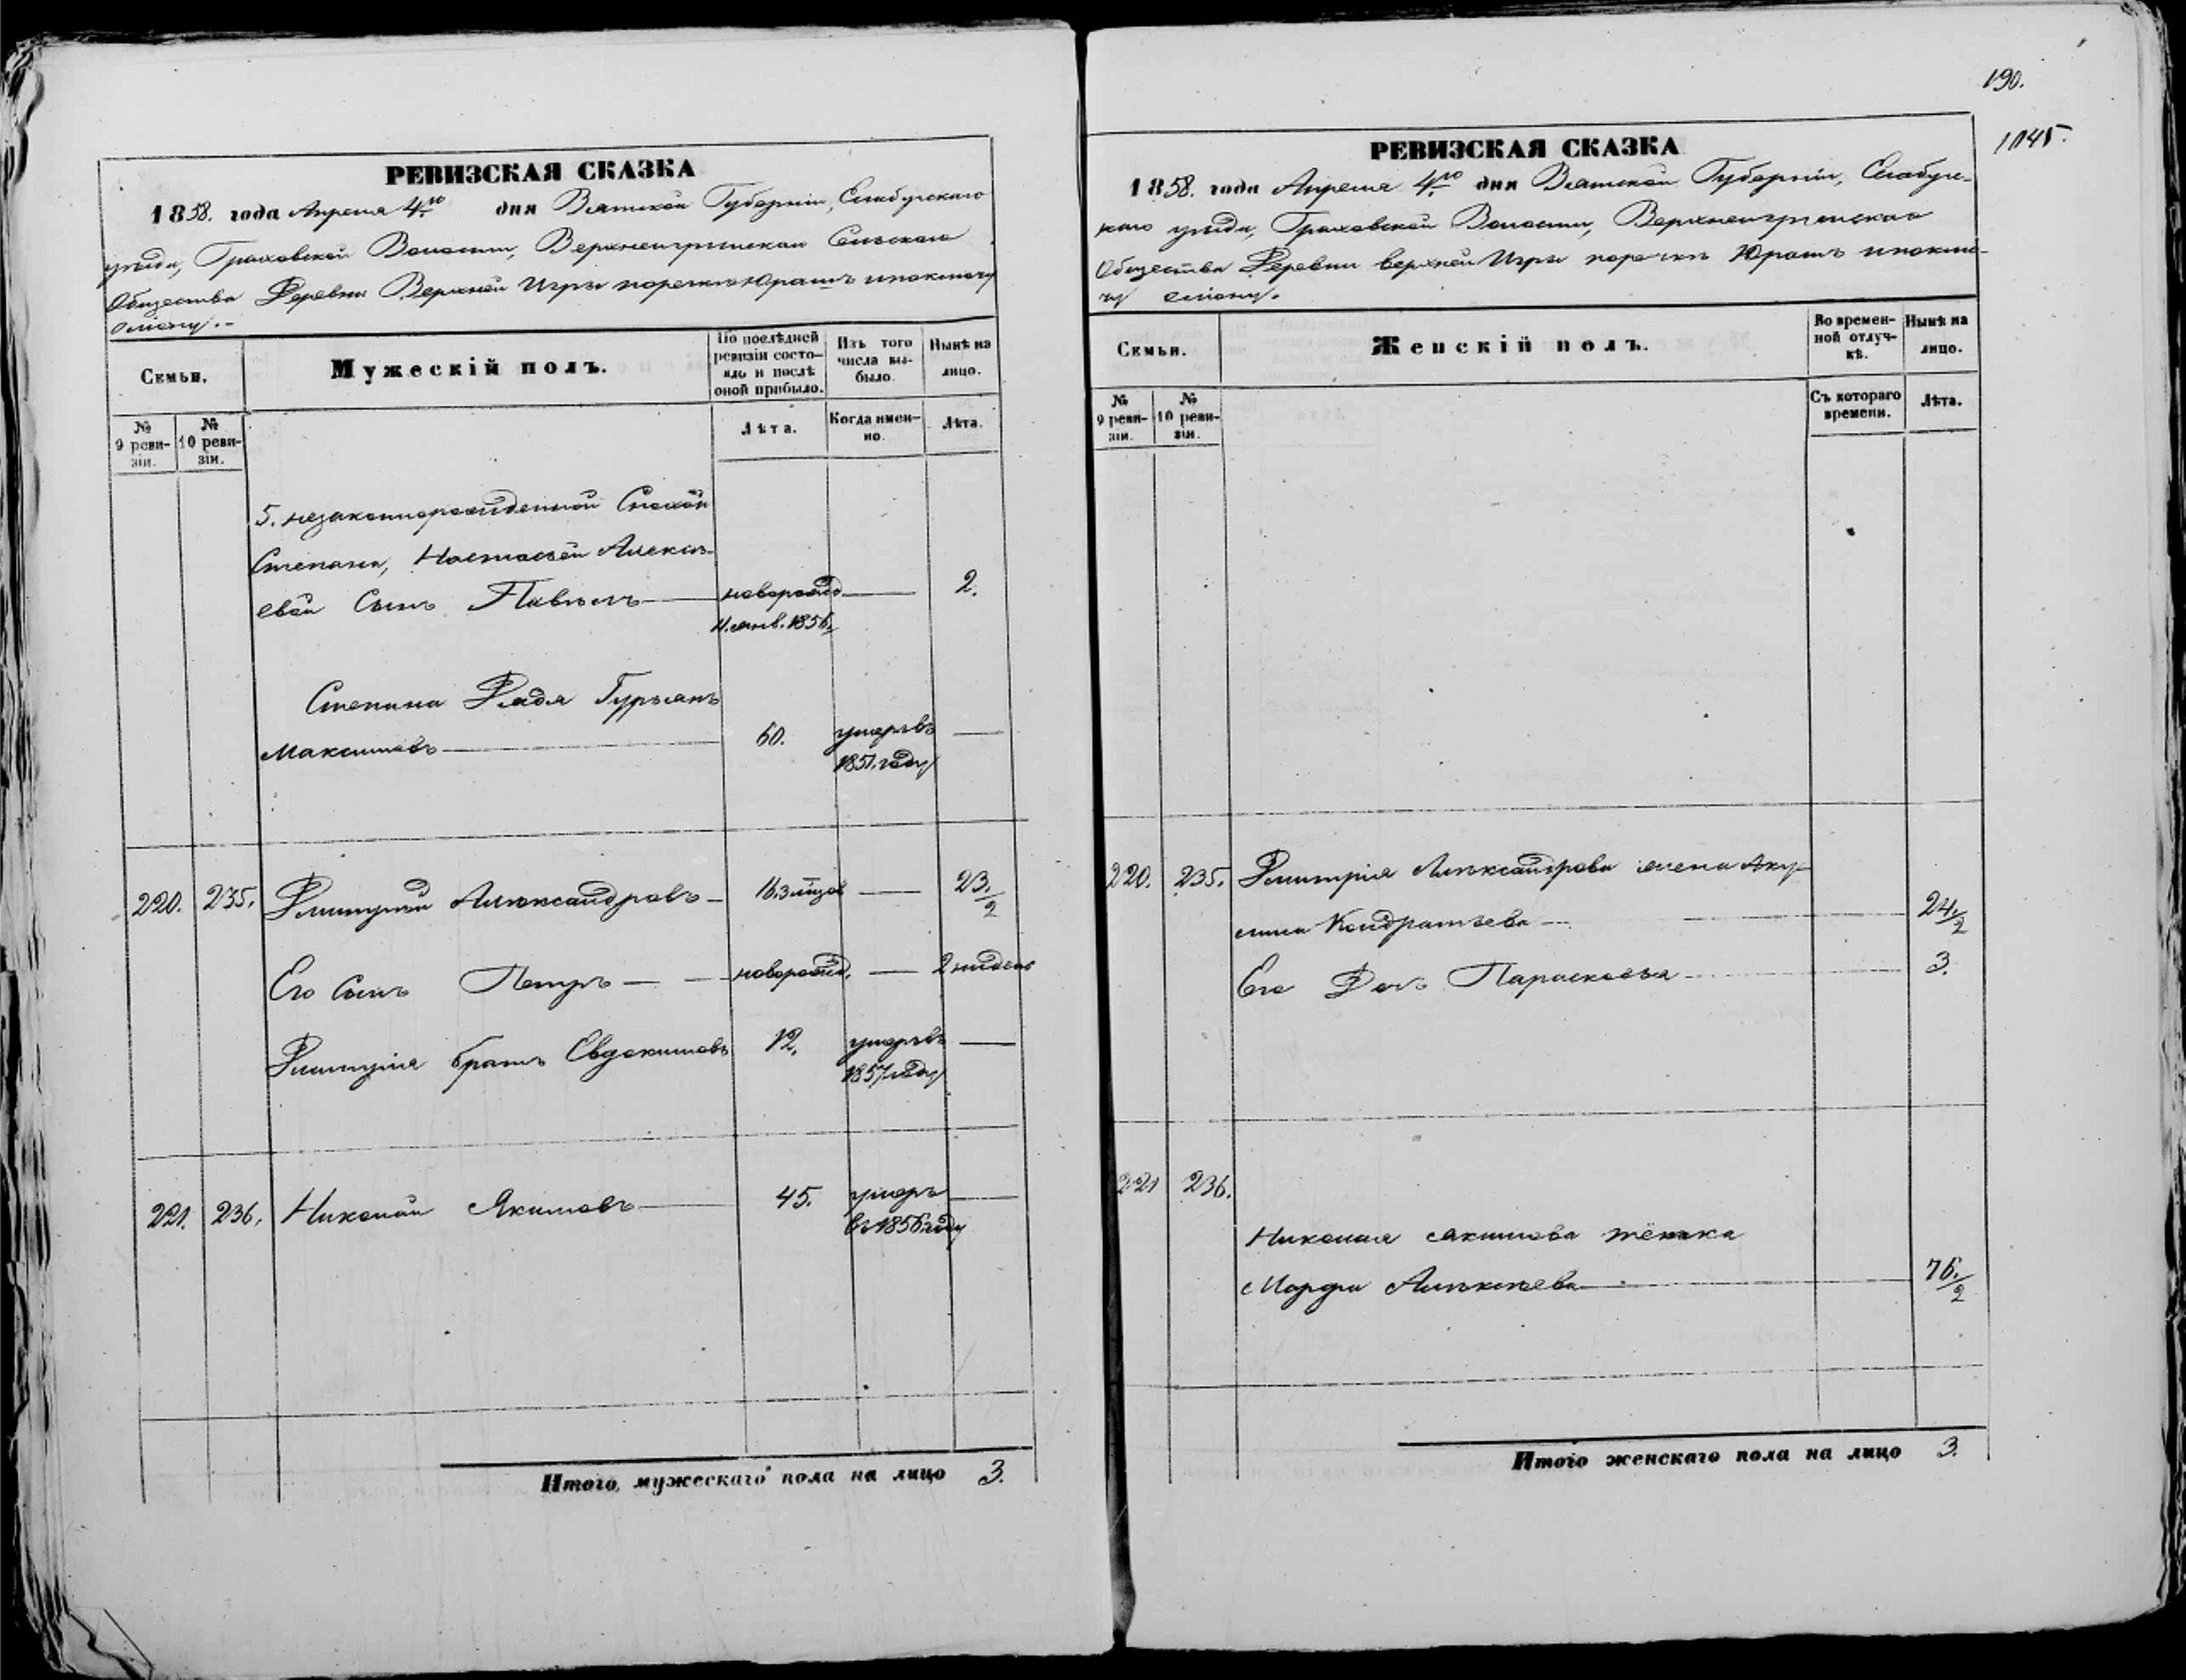 РЕВИЗСКАЯ СКАЗКА
1858. года Апреля 4го дня Вятской Губерніи, Елабугскаго
уѣзда, Граховской Волости, Верхнеигринскаго Сельскаго
Общества Деревни Верхней Игры поречкѣ Юрашъ
Семьи.
Мужескій полъ.
По послѣдней ревизіи состо-
яло и послѣ оной прибыло.
Изъ того числа вы-
было.
Нынѣ на лицо.
№ 9 реви-
зіи.
№ 10 реви-
зіи.
Лѣта.
Когда имен-
но.
Лѣта.
5. незаконнорожденной Снохой
Степана, Настасьей Алексѣ-
евой Сынъ Павелъ новорожд. 2.
11. янв. 1856.
Степана Дядя Гурьянъ
Максимовъ 60. умеръ въ
1851. году
220. 235. Дмитрей Александровъ 16. 3 мѣсяц 23./2
Его Сынъ Петръ новорожд. 2 недель
Дмитрія братъ Евдокимовъ 12. умеръ въ
1857 году
221. 236. Николай Якимовъ 45. умеръ
въ 1856 году
Итого мужескаго пола на лицо 3.
190.
1045.
РЕВИЗСКАЯ СКАЗКА
1858. года Апреля 4го дня Вятской Губерніи, Елабуг-
скаго уѣзда, Граховской Волости, Верхнеигринскаго
Общества Деревни верхней Игры поречкѣ Юрашъ
Семьи.
Женскій полъ.
Во времен-
ной отлуч-
кѣ.
Нынѣ на лицо.
№ 9 реви-
зіи.
№ 10 реви-
зіи.
Съ котораго времени.
Лѣта.
220. 235. Дмитрія Александрова жена Аку-
лина Кондратьева 24./2
Его Дочь Парасковья 3.
221 236.
Николая Якимова тётка
Марфа Алексѣева 76./2
Итого женскаго пола на лицо 3.